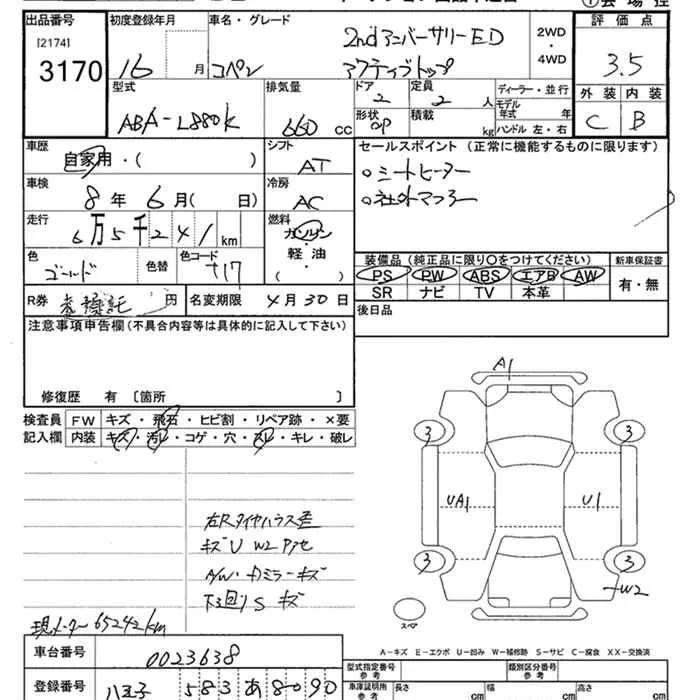 出品番号 初度登録年月 車名・グレード 2WD・4WD 評価点
[2174]
3170
16 月 コペン 2ndアニバーサリーED アクティブトップ 3.5
型式 排気量 ドア 定員 ディーラー・並行 外装 内装
ABA-L880K 660 cc 2 2 人 モデル年式 年 C B
形状 OP 積載 kg ハンドル 左・右
車歴 シフト セールスポイント(正常に機能するものに限ります)
自家用・( ) AT ○シートヒーター
車検 冷房 ○社外マフラー
8年 6月( 日) AC
走行 燃料
6万5千241km ガソリン・軽油 ( )
色 色替 色コード 装備品(純正品に限り○をつけてください) 新車保証書
ゴールド T17 PS PW ABS エアB AW 有・無
SR ナビ TV 本革
R券 未預託 円 名変期限 4月30日 後日品
注意事項申告欄(不具合内容等は具体的に記入して下さい)
修復歴 有 〔箇所 〕
検査員 FW キズ・飛石・ヒビ割・リペア跡・×要
記入欄 内装 キズ・汚レ・コゲ・穴・スレ・キレ・破レ
A1
3 3
UA1 U1
3 3
W2
スペア
右Rタイヤハウス歪
キズU W2 Pアセ
A/W・ドミラーキズ
下回りS キズ
現メーター65242km
A-キズ E-エクボ U-凹み W-補修跡 S-サビ C-腐食 XX-交換済
車台番号 0023638
型式指定番号 参考 類別区分番号 参考
登録番号 八王子 583 あ 8090
車庫証明用 参考 長さ cm 幅 cm 高さ cm